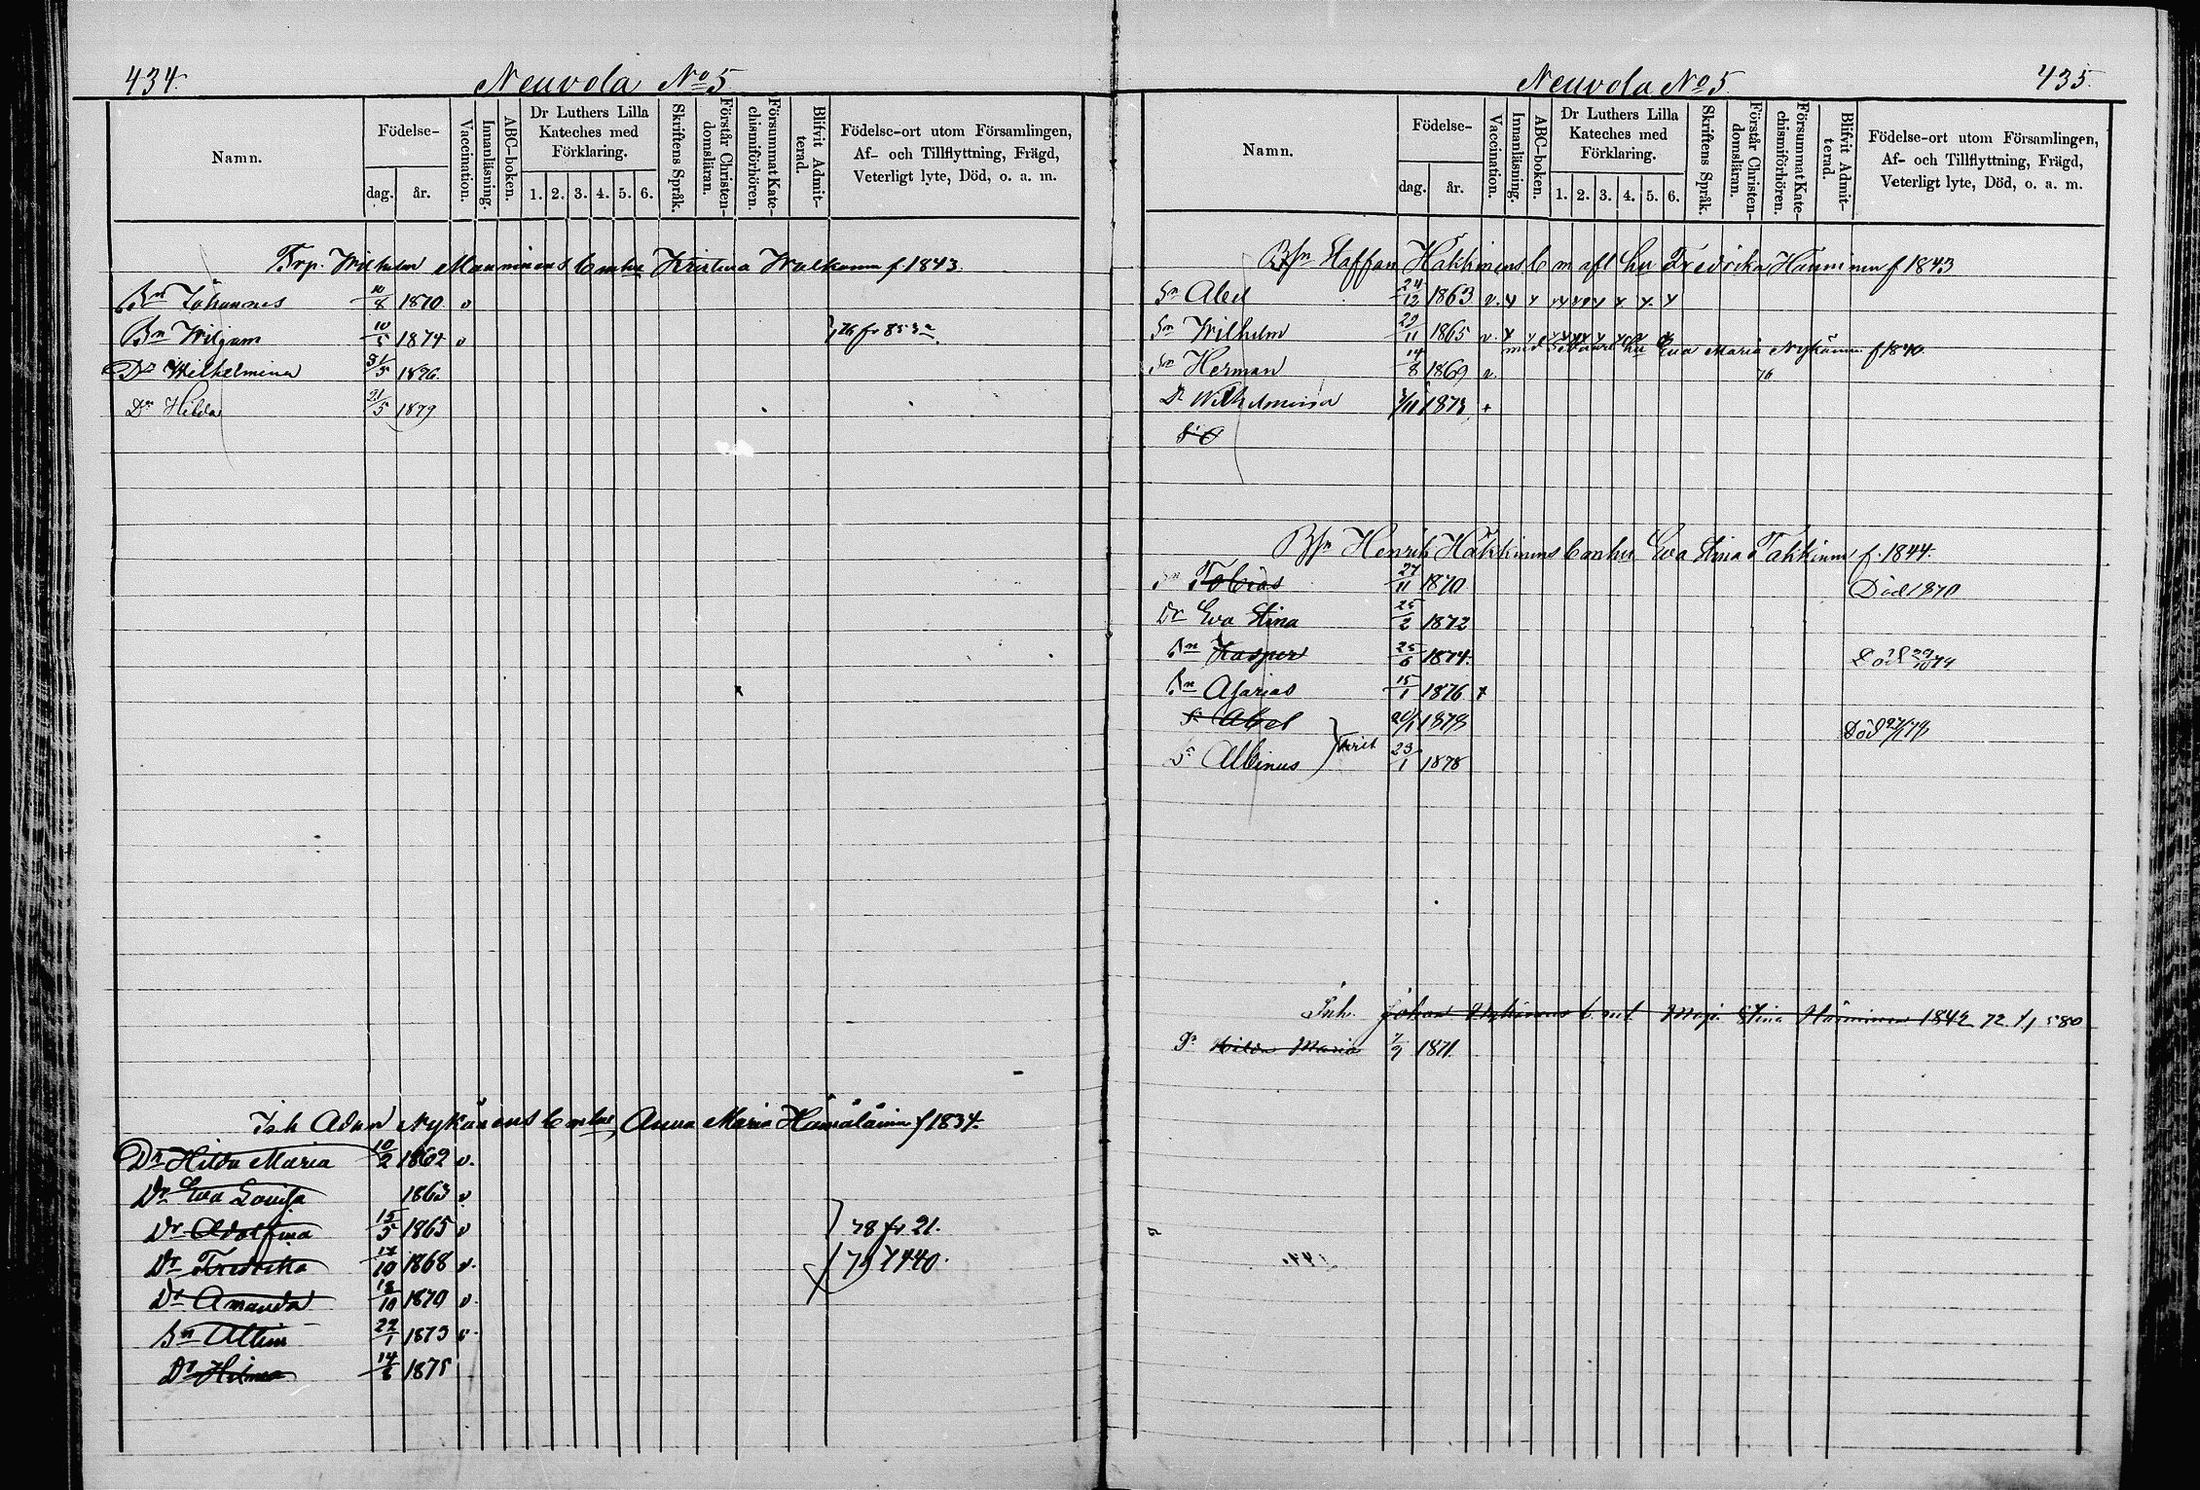 434.
Neuvola No 5
Namn.
Födelse-
dag.
år.
Vaccination.
Innanläsning.
ABC-boken.
Dr Luthers Lilla Kateches med Förklaring.
1. 2. 3. 4. 5. 6.
Skriftens Språk.
Förstår Christendomsläran.
Försummat Katechismiförhören.
Blifvit Admitterad.
Födelse-ort utom Församlingen, Af- och Tillflyttning, Frägd, Veterligt lyte, Död, o. a. m.
Wilhelm Manninens Kristina f 1843.
Sn Johannes 10/8 1870 v
Sn Wiljam 10/5 1874 v 76 fr 853
Dr Wilhelmina 31/5 1876.
Dr Hilda 21/5 1879
Adam Nykänens Anna Maria Hämäläinen f 1834.
Dr Hilda Maria 10/2 1862 v.
Dr Eva Lovisa 1863 v
Dr Adolfina 15/5 1865 v 78 fr 21.
Dr Fredrika 1868 v. 79 440.
Dr Amanda 1870 v.
Sn Albin 22/1 1873 v.
Dr Hilma 14/6 1875
435.
Neuvola No 5
Namn.
Födelse-
dag.
år.
Vaccination.
Innanläsning.
ABC-boken.
Dr Luthers Lilla Kateches med Förklaring.
1. 2. 3. 4. 5. 6.
Skriftens Språk.
Förstår Christendomsläran.
Försummat Katechismiförhören.
Blifvit Admitterad.
Födelse-ort utom Församlingen, Af- och Tillflyttning, Frägd, Veterligt lyte, Död, o. a. m.
Staffan Häkkinens b m afl hu Fredrika Hänninen f 1843
Sn Abel 24/12 1863 v.
Sn Wilhelm 29/11 1865 v.
hu Eva Maria Nykänen f 1840.
Sn Herman 14/8 1869 v. 76
Dr Wilhelmina 1873
Henrik Häkkinens Eva Stina Takkinen f. 1844.
Sn Tobias 27/11 1870 Död 1870
Dr Eva Stina 25/2 1872
Sn Kasper 25/6 1874. Död
Sn Asarias 15/1 1876
S Abel 1878 Död
S Albinus 23/1 1878
Inh. Johan Nykänens Maja Stina Hänninen 1842 72
Dr Hilda Maria 1871.